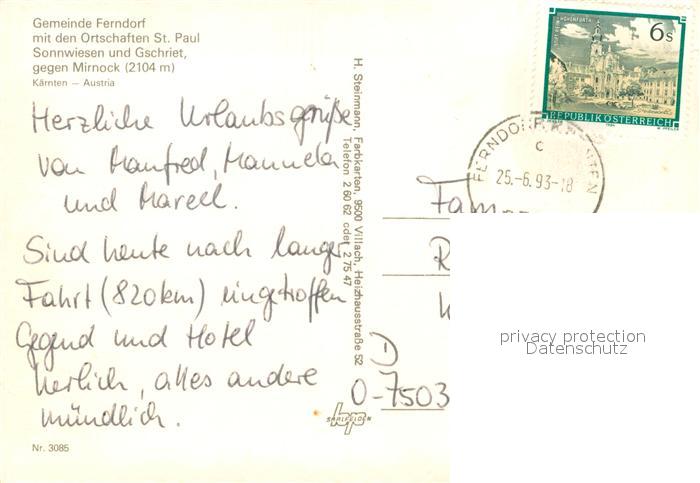 Gemeinde Ferndorf
mit den Ortschaften St. Paul
Sonnwiesen und Gschriet,
gegen Mirnock (2104 m)
Kärnten — Austria
Herzliche Urlaubsgrüße
von Manfred, Manuela
und Marcel.
Sind heute nach langer
Fahrt (820km) eingetroffen
Gegend und Hotel
herlich, alles andere
mündlich.
Nr. 3085
H. Steinmann, Farbkarten, 9500 Villach, Heizhausstraße 52
Telefon 2 60 62 oder 2 75 47
STIFT REIN-HOHENFURTH
6s
REPUBLIK ÖSTERREICH
FERNDORF, KÄRNTEN
c
25.-6.93-18
Fam
R
(-)
O-7503
SAALFELDEN
privacy protection
Datenschutz